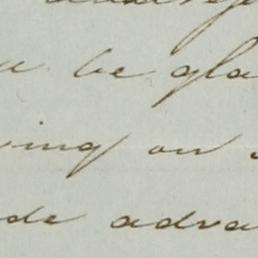 be gla
ving on
de adva